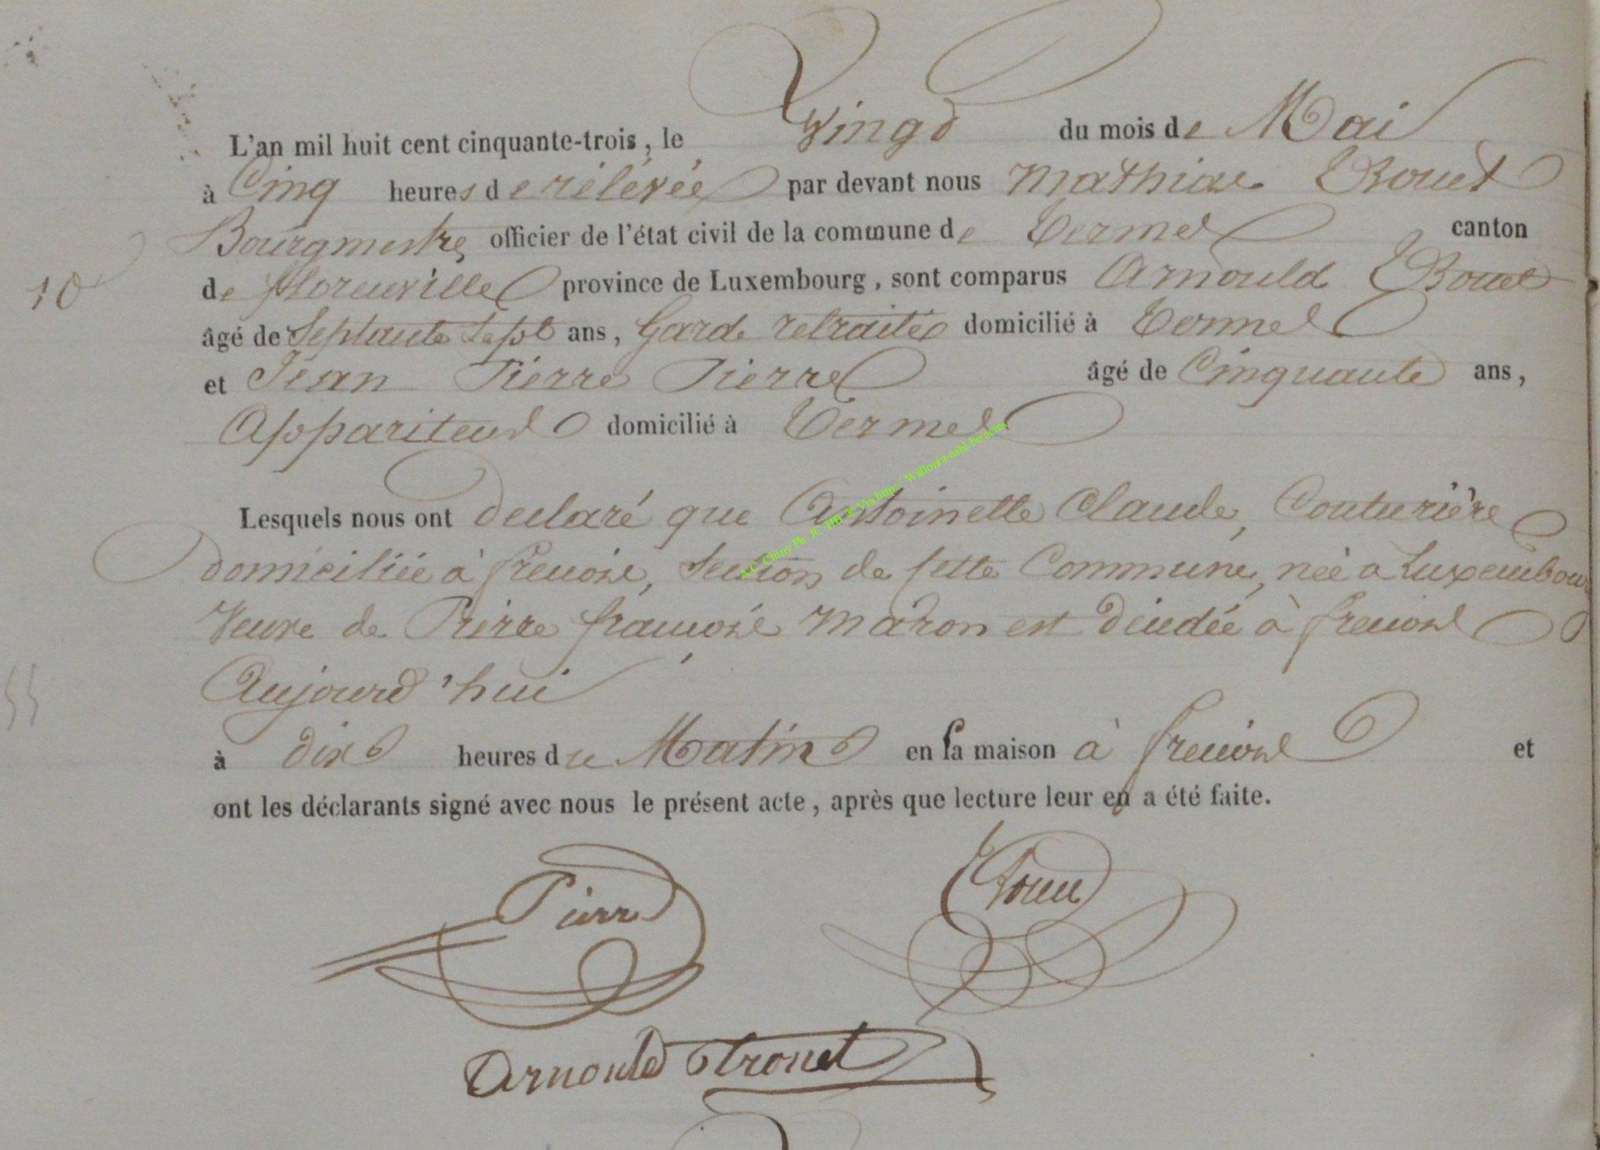 L'an mil huit cent cinquante-trois, le Vingt du mois de Mai
à Cinq heures de rélevée par devant nous Mathias
Bourgmestre officier de l'état civil de la commune de Termes canton
10
de florenville province de Luxembourg, sont comparus Arnould
âgé de Septante Sept ans, Garde retraité domicilié à Termes
et Jean Pierre Pierre âgé de Cinquante ans,
Appariteur domicilié à Termes
Lesquels nous ont déclaré que Antoinette Claude, Couturière
domiciliée à frenois, Section de cette Commune, née à Luxembour
Veuve de Pierre françois Maron est décédée à frenois
Aujourd'hui
55
à dix heures du Matin en sa maison à frenois et
ont les déclarants signé avec nous le présent acte, après que lecture leur en a été faite.
Pierre
Arnould